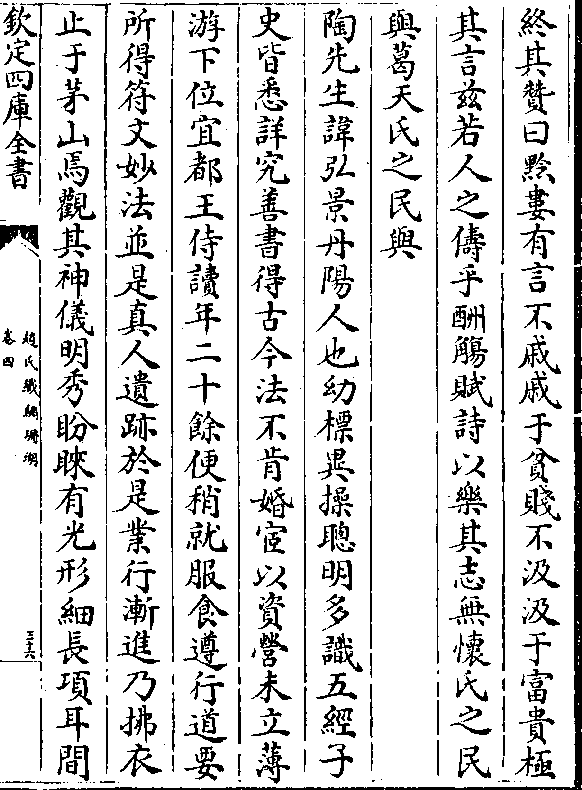 終其贊曰黔婁有言不戚戚于貧賤不汲汲于富貴極
其言兹若人之儔乎酬觴賦詩以樂其志無懷氏之民
與葛天氏之民與
陶先生諱弘景丹陽人也幼標異操聰明多識五經子
史皆悉詳究善書得古今法不肯婚宦以資營未立薄
游下位宜都王侍讀年二十餘便稍就服食遵行道要
所得符文妙法並是真人遺跡於是業行漸進乃拂衣
止于茅山焉觀其神儀明秀盼睞有光形細長項耳間
欽定四庫全書
趙氏鐵網珊瑚
卷四
三十六